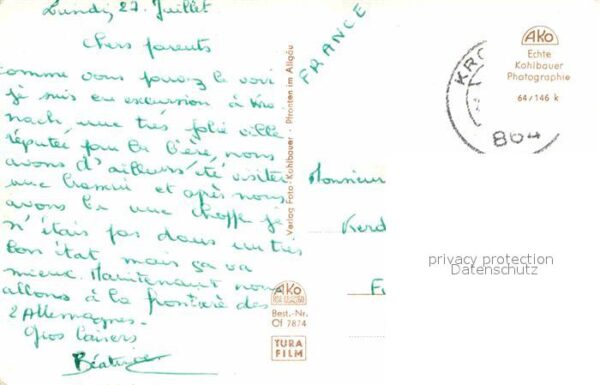 Lundi, 27 Juillet
Chers parents
comme vous pouvez le voir
je suis en excursion à Kro
nach, une très jolie ville
réputée pour la bière, nous
avons d'ailleurs été visiter
une et après nous
avons bu une choppe je
n'étais pas dans un très
bon état, mais ça va
mieux. Maintenant nous
allons à la frontière des
2 Allemagnes.
Gros baisers
Béatrice
FRANCE
Verlag Foto-Kohlbauer · Pfronten im Allgäu
AKO
Best.-Nr.
Of 7874
TURA
FILM
AKo
Echte
Kohlbauer
Photographie
64/146 k
KRO
864
Monsieur
Kerd
privacy protection
Datenschutz